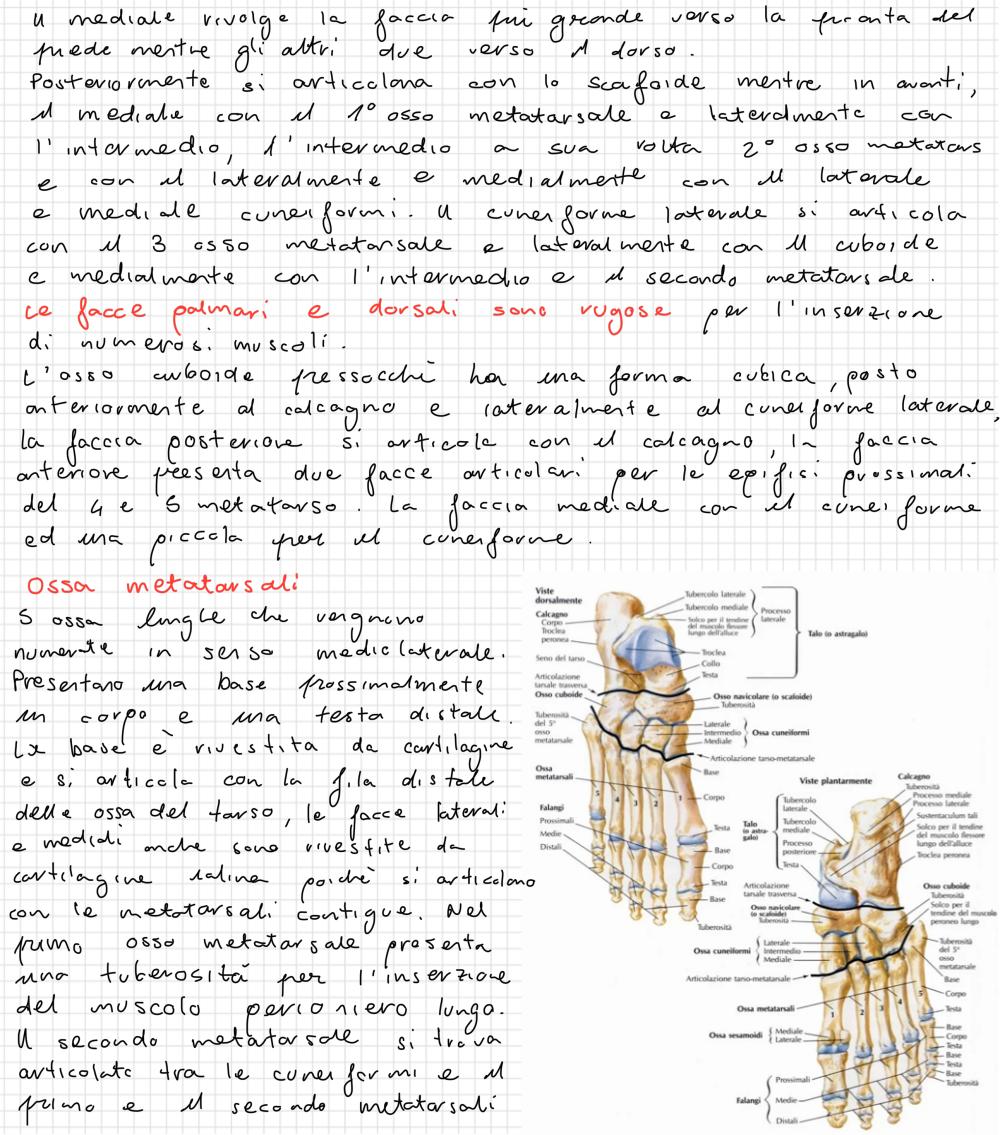 Il mediale rivolge la faccia più grande verso la pianta del
piede mentre gli altri due verso il dorso.
Posteriormente si articolano con lo scafoide mentre in avanti,
il mediale con il 1° osso metatarsale e lateralmente con
l'intermedio, l'intermedio a sua volta 2° osso metatars
e con il lateralmente e medialmente con il laterale
e mediale cuneiformi. Il cuneiforme laterale si articola
con il 3 osso metatarsale e lateralmente con il cuboide
e medialmente con l'intermedio e il secondo metatarsale.
Le facce palmari e dorsali sono rugose per l'inserzione
di numerosi muscoli.
L'osso cuboide pressocchè ha una forma cubica, posto
anteriormente al calcagno e lateralmente al cuneiforme laterale,
la faccia posteriore si articola con il calcagno, la faccia
anteriore presenta due facce articolari per le epifisi prossimali
del 4 e 5 metatarso. La faccia mediale con il cuneiforme
ed una piccola per il cuneiforme.
Ossa metatarsali
5 ossa lunghe che vengono
numerate in senso mediolaterale.
Presentano una base prossimalmente
un corpo e una testa distale.
La base è rivestita da cartilagine
e si articola con la fila distale
delle ossa del tarso, le facce laterali
e mediali anche sono rivestite da
cartilagine ialina poichè si articolano
con le metatarsali contigue. Nel
primo osso metatarsale presenta
una tuberosità per l'inserzione
del muscolo peroniero lungo.
Il secondo metatarsale si trova
articolato tra le cuneiformi e il
primo e il secondo metatarsali
Viste
dorsalmente
Calcagno
Corpo
Troclea
peronea
Seno del tarso
Articolazione
tarsale trasversa
Osso cuboide
Tuberosità
del 5°
osso
metatarsale
Ossa
metatarsali
Falangi
Prossimali
Medie
Distali
Tubercolo laterale
Tubercolo mediale
Solco per il tendine
del muscolo flessore
lungo dell'alluce
Processo
laterale
Talo (o astragalo)
Troclea
Collo
Testa
Osso navicolare (o scafoide)
Tuberosità
Laterale
Intermedio
Mediale
Ossa cuneiformi
Articolazione tarso-metatarsale
Base
5
4
3
2
1
Corpo
Testa
Base
Corpo
Testa
Base
Tuberosità
Viste plantarmente
Calcagno
Tuberosità
Processo mediale
Processo laterale
Sustentaculum tali
Solco per il tendine
del muscolo flessore
lungo dell'alluce
Troclea peronea
Talo
(o astra-
galo)
Tubercolo
laterale
Tubercolo
mediale
Processo
posteriore
Testa
Articolazione
tarsale trasversa
Osso navicolare
(o scafoide)
Tuberosità
Osso cuboide
Tuberosità
Solco per il
tendine del muscolo
peroneo lungo
Ossa cuneiformi
Laterale
Intermedio
Mediale
Tuberosità
del 5°
osso
metatarsale
Articolazione tarso-metatarsale
Base
Corpo
Testa
Ossa metatarsali
1
2
3
4
5
Ossa sesamoidi
Mediale
Laterale
Base
Corpo
Testa
Base
Testa
Base
Tuberosità
Falangi
Prossimali
Medie
Distali